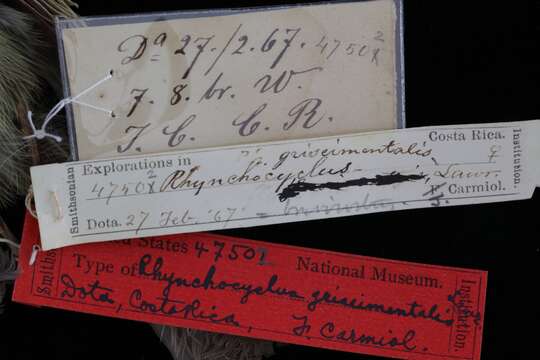 Dª 27./2.67. 4750 2
7. 8. br. W.
C. R.
Smithsonian
Explorations in
Costa Rica.
Institution.
griseimentalis ♀
4750 2
Rhynchocyclus
Lawr.
Carmiol.
Dota. 27 Feb. '67
States 4750
Type of Rhynchocyclus griseimentalis
National Museum.
Institution.
Dota, Costa Rica, J. Carmiol.